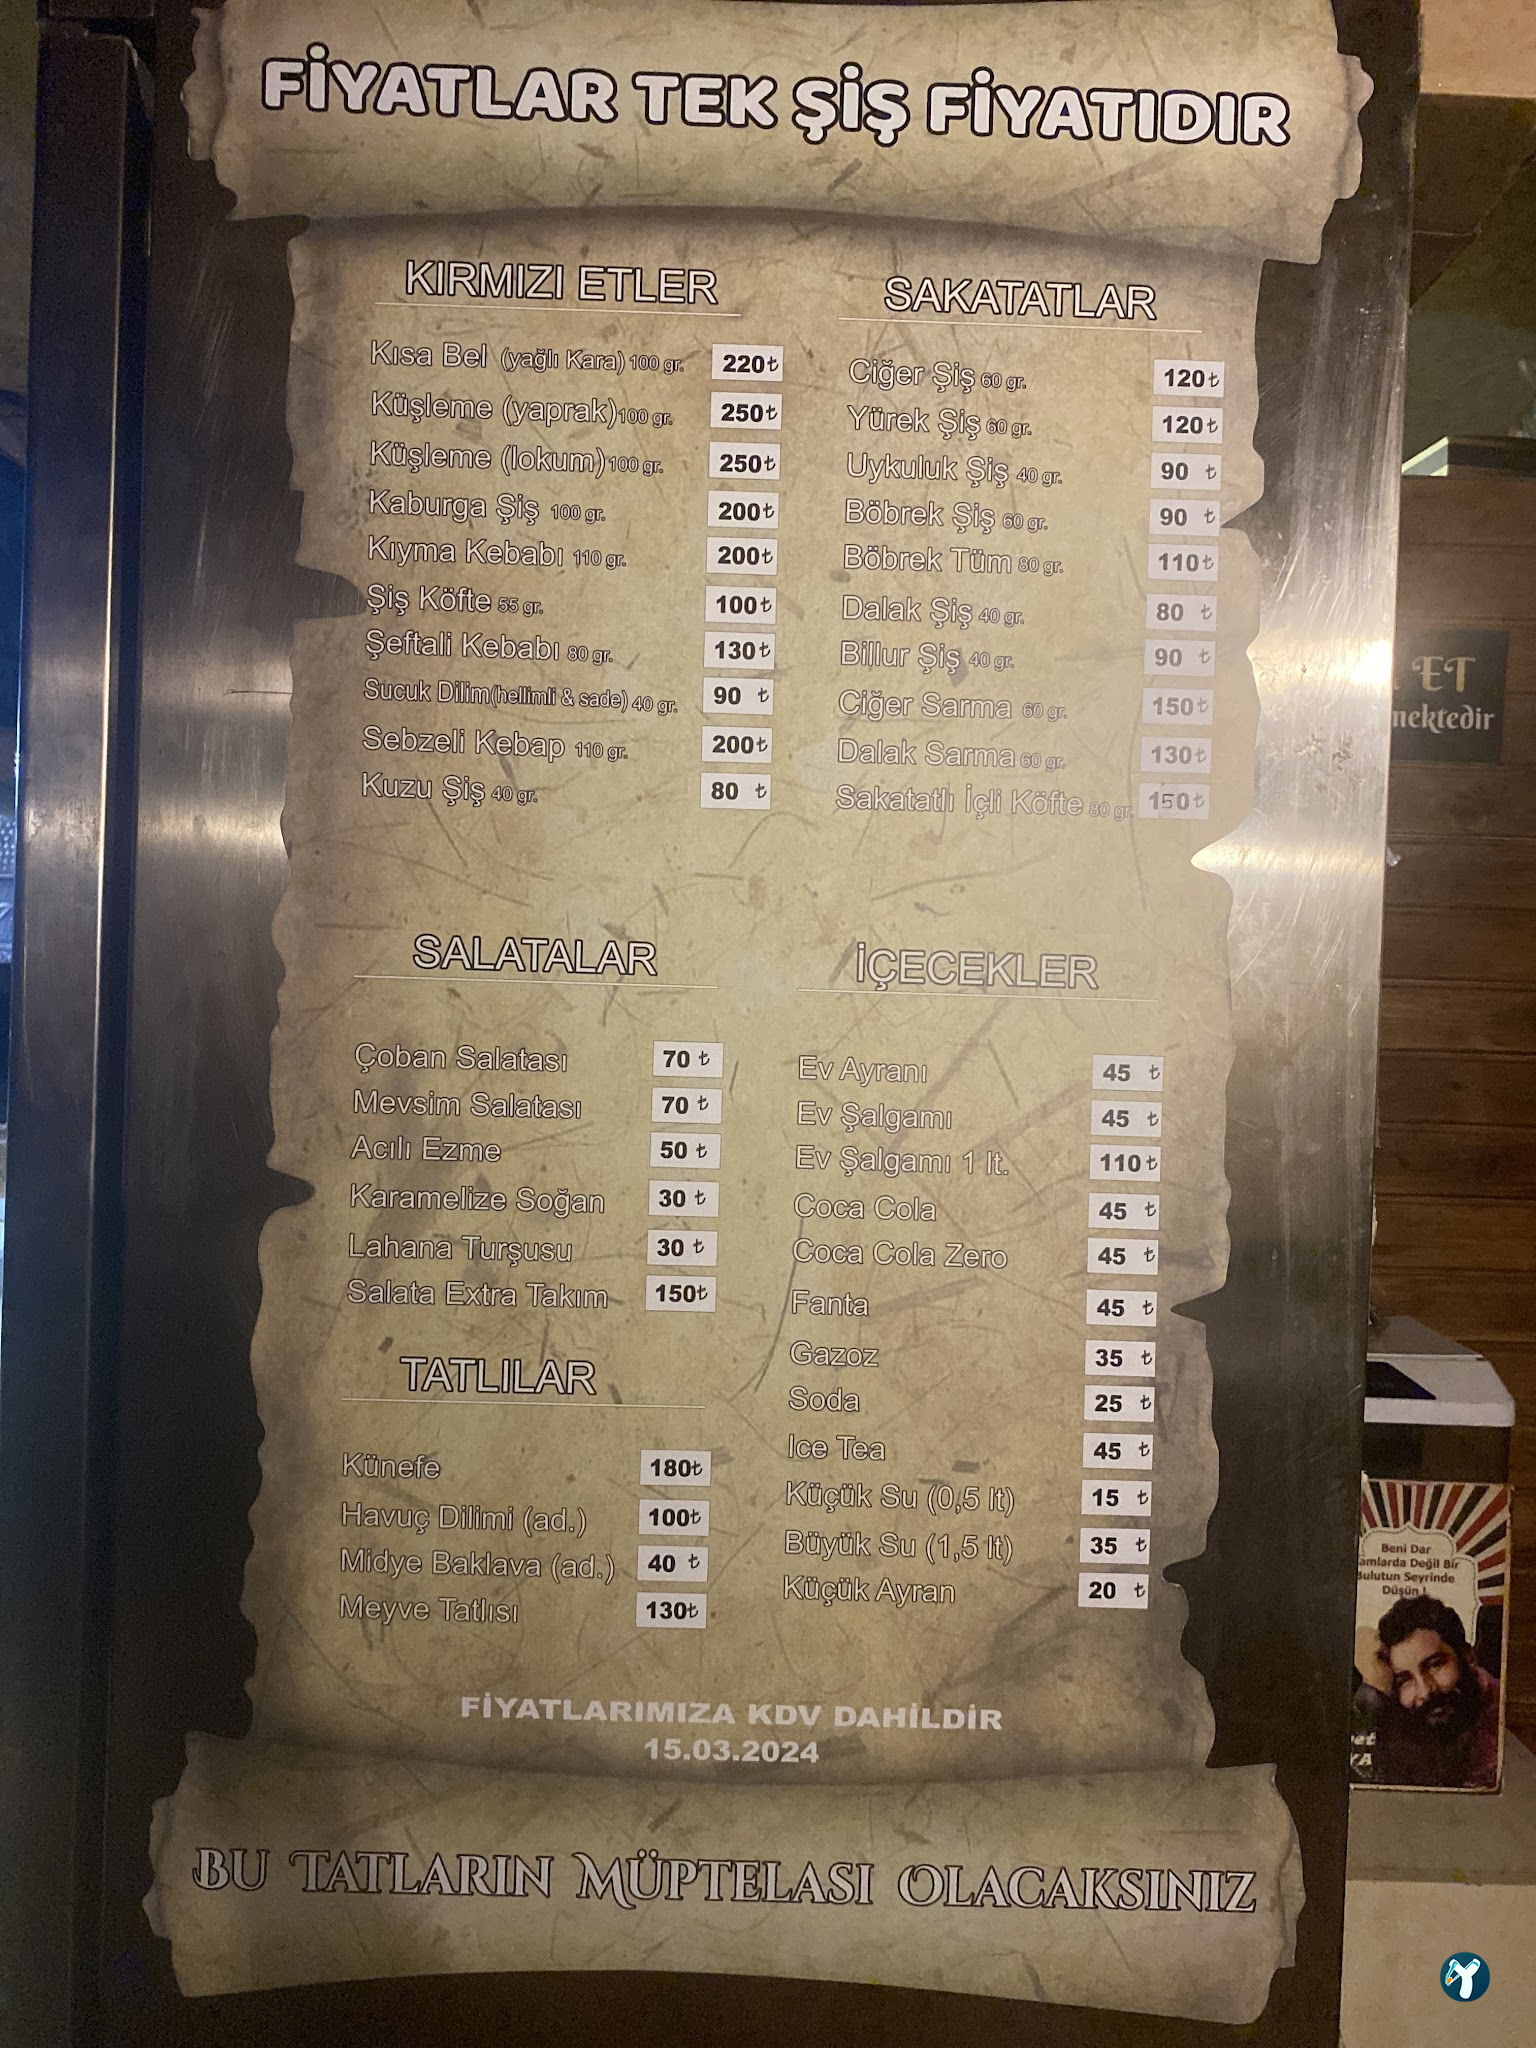 FİYATLAR TEK ŞİŞ FİYATIDIR
KIRMIZI ETLER
Kısa Bel (yağlı Kara) 100 gr. 220₺
Küşleme (yaprak)100 gr. 250₺
Küşleme (lokum)100 gr. 250₺
Kaburga Şiş 100 gr. 200₺
Kıyma Kebabı 110 gr. 200₺
Şiş Köfte 55 gr. 100₺
Şeftali Kebabı 80 gr. 130₺
Sucuk Dilim(hellimli & sade) 40 gr. 90 ₺
Sebzeli Kebap 110 gr. 200₺
Kuzu Şiş 40 gr. 80 ₺
SAKATATLAR
Ciğer Şiş 60 gr. 120₺
Yürek Şiş 60 gr. 120₺
Uykuluk Şiş 40 gr. 90 ₺
Böbrek Şiş 60 gr. 90 ₺
Böbrek Tüm 80 gr. 110₺
Dalak Şiş 40 gr. 80 ₺
Billur Şiş 40 gr. 90 ₺
Ciğer Sarma 60 gr. 150₺
Dalak Sarma 60 gr. 130₺
Sakatatlı İçli Köfte 80 gr. 150₺
SALATALAR
Çoban Salatası 70 ₺
Mevsim Salatası 70 ₺
Acılı Ezme 50 ₺
Karamelize Soğan 30 ₺
Lahana Turşusu 30 ₺
Salata Extra Takım 150₺
TATLILAR
Künefe 180₺
Havuç Dilimi (ad.) 100₺
Midye Baklava (ad.) 40 ₺
Meyve Tatlısı 130₺
İÇECEKLER
Ev Ayranı 45 ₺
Ev Şalgamı 45 ₺
Ev Şalgamı 1 lt. 110₺
Coca Cola 45 ₺
Coca Cola Zero 45 ₺
Fanta 45 ₺
Gazoz 35 ₺
Soda 25 ₺
Ice Tea 45 ₺
Küçük Su (0,5 lt) 15 ₺
Büyük Su (1,5 lt) 35 ₺
Küçük Ayran 20 ₺
FİYATLARIMIZA KDV DAHİLDİR
15.03.2024
BU TATLARIN MÜPTELASI OLACAKSINIZ
ET
mektedir
Beni Dar
amlarda Değil Bir
Bulutun Seyrinde
Düşün !